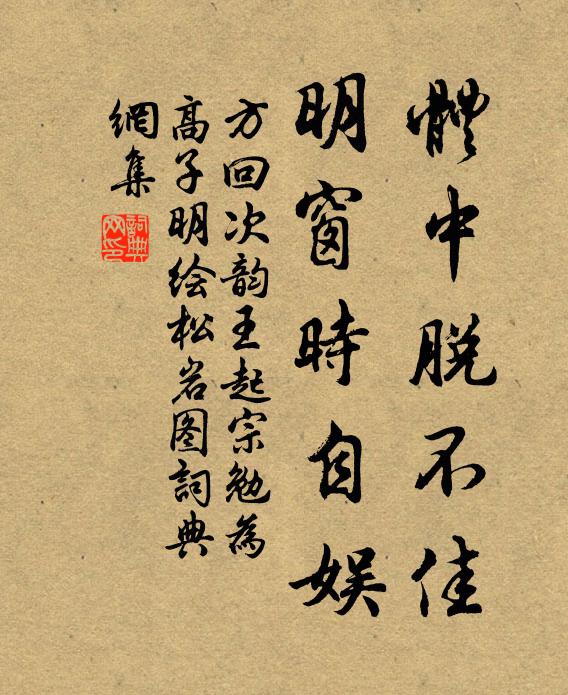 體中脱不佳
明窗時自娱
方回次韵王起宗勉為
高子明绘松岩图詞典
網集
詞典
网印